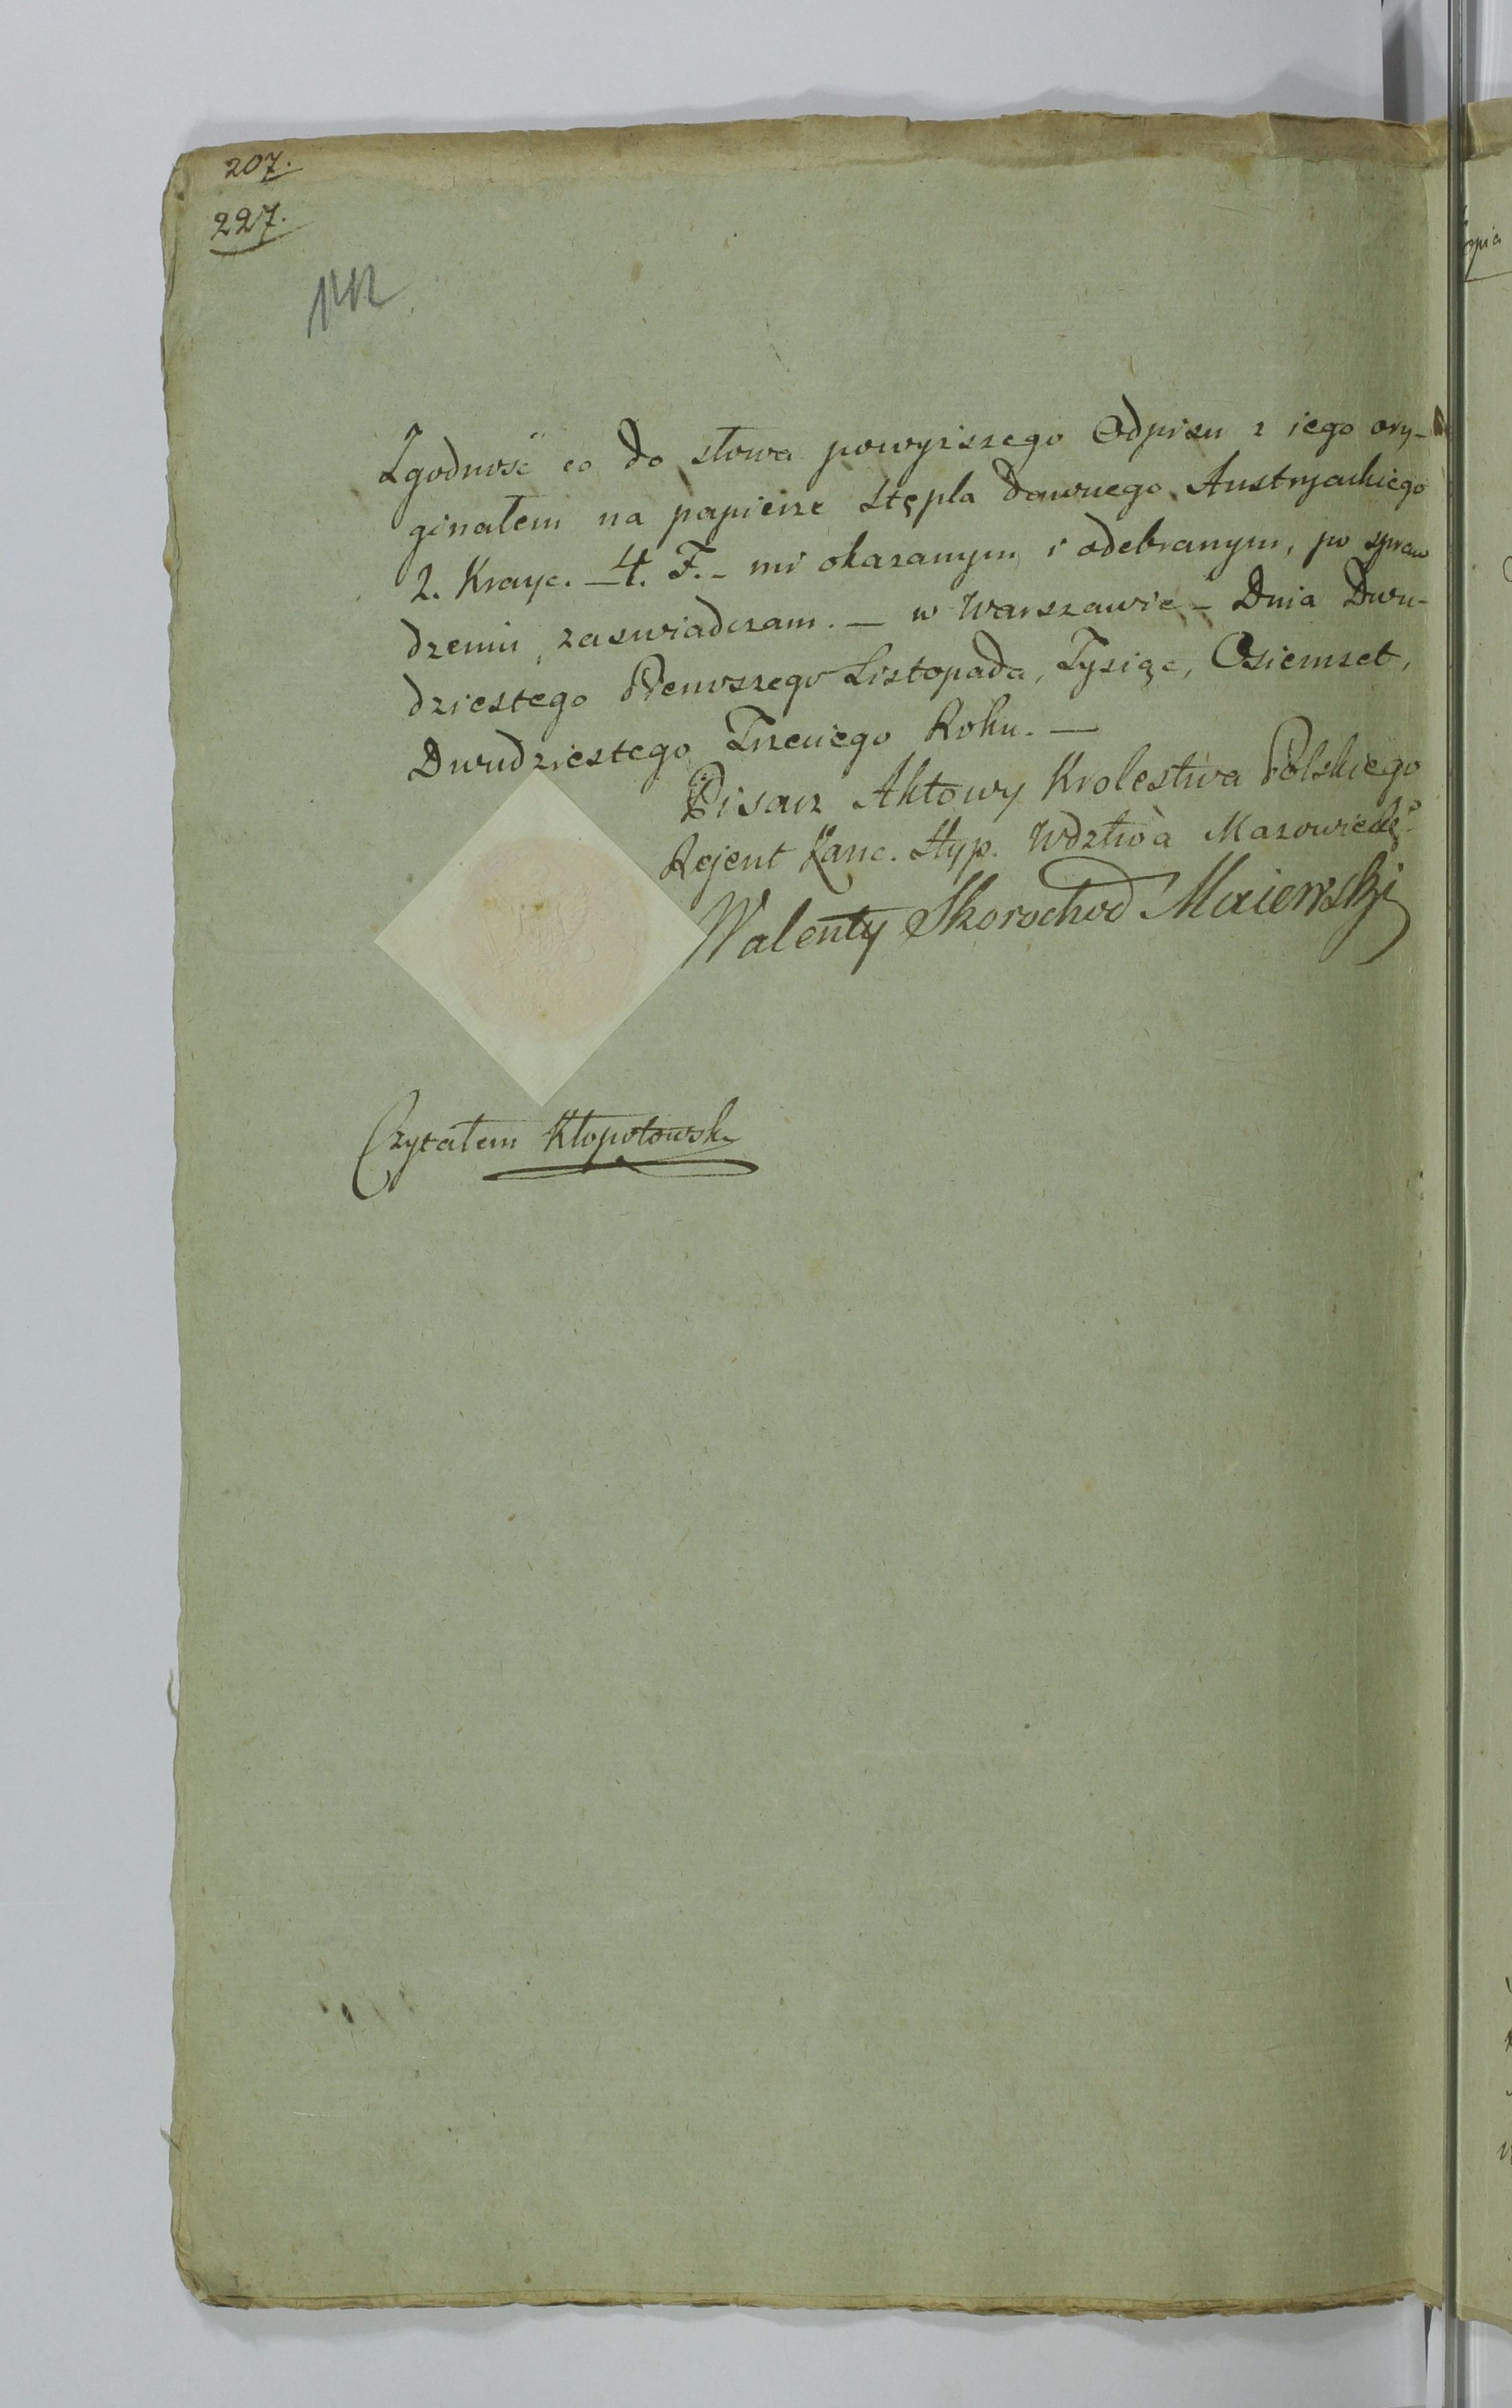 207.
227.
Zgodność co do słowa powyższego Odpisu z iego ory-
ginałem na papierze stępla dawnego Austryackiego
2. Krayc. – 4. F. – mi okazanym i odebranym, po spraw
dzeniu, zaswiadczam. – w Warszawie – Dnia Dwu-
dziestego Pierwszego Listopada, Tysiąc, Osiemset,
Dwudziestego Trzeciego Roku. –
Pisarz Aktowy Krolestwa Polskiego
Rejent Kanc. Hyp. Wdztwa Mazowieckgo
Walenty Skorochod Maiewski
Czytałem Kłopotowski